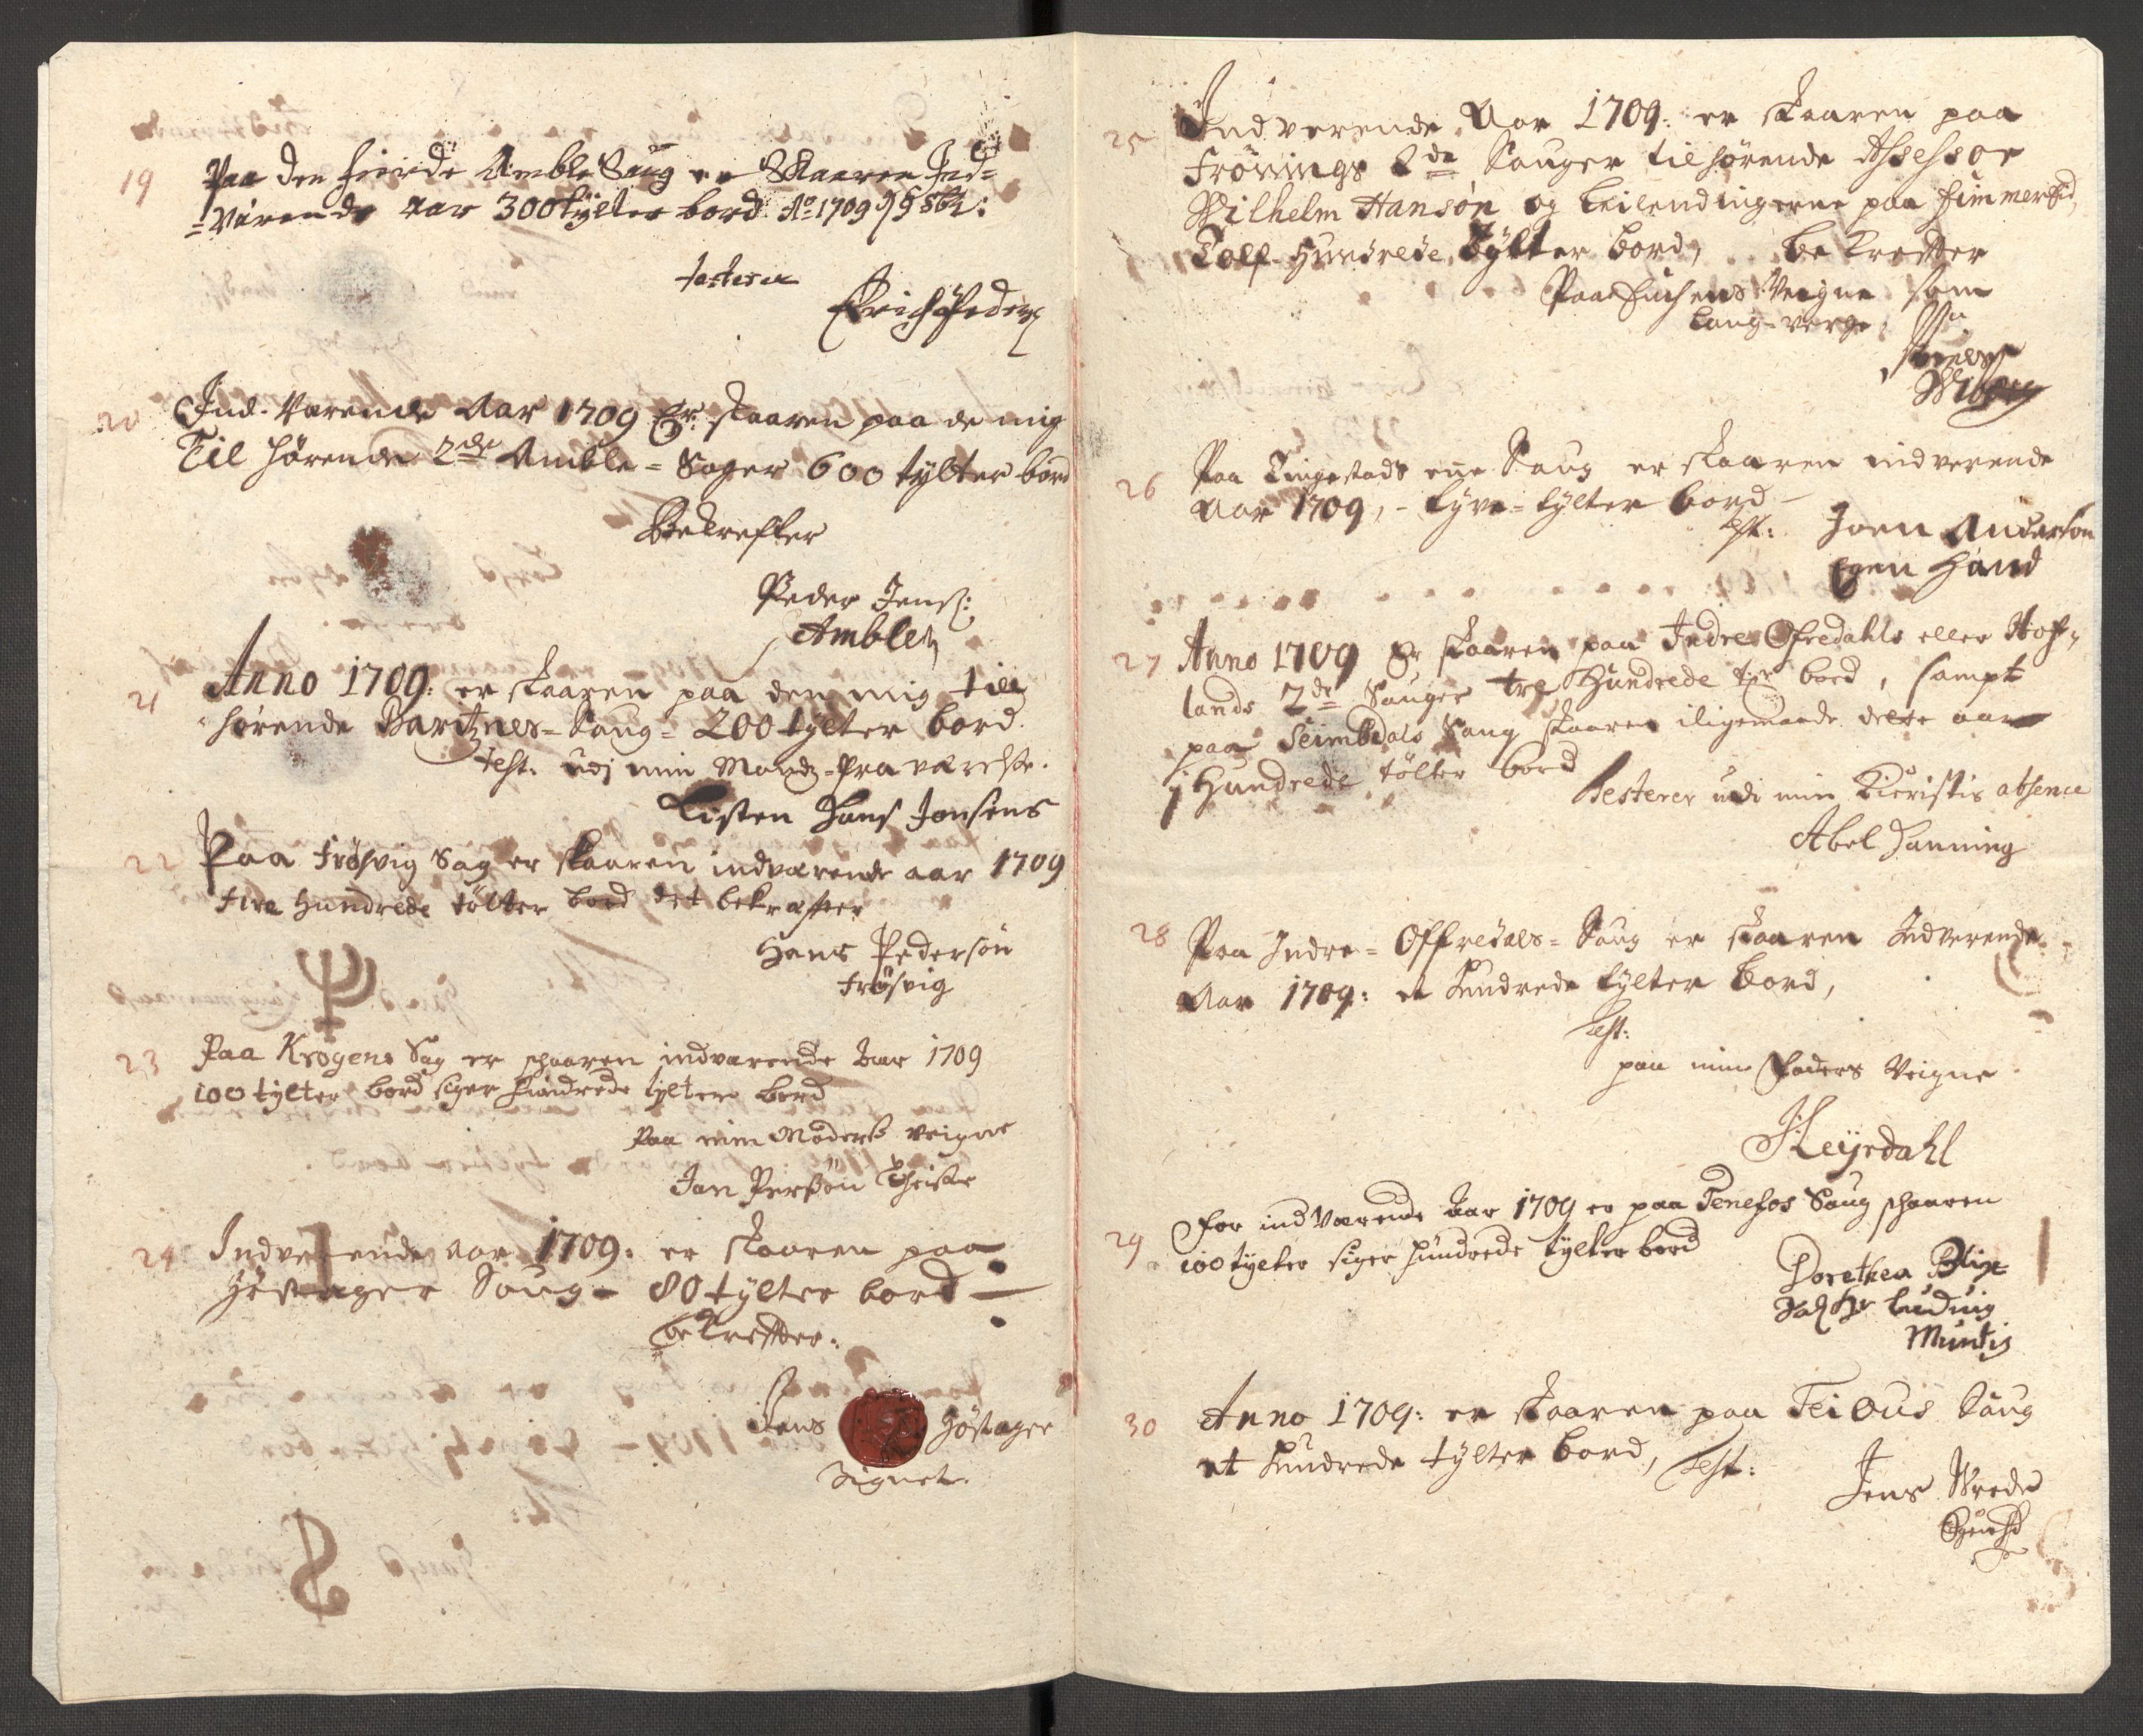 19
Paa den fierde Amble Saug er Skaaren Ind=
=Værende aar 300 tylter bord Ao 1709
testerer
Erich Peders
20
Ind-Værende Aar 1709 Er skaaren paa de mig
Til hørende 2de Amble= Sager 600 tylter bord
Bekrefter
Peder Jens:
Amble
21
Anno 1709: er skaaren paa den mig till
hørende Baritznes= Saug= 200 tylter bord.
test: udj min Mands fraværelse.
Listen Hans Jonsens
22
Paa Frøsvig Sag er skaaren indværende aar 1709
tire Hundrede tölter bord det bekrafter
Hans Pedersön
Frøsvig
23
Paa Krogens Sag er skaaren indværende Aar 1709
100 tylter bord siger hundrede tylter bord
Paa min Moders Veigne
Jan Persøn Theiste
24
Indverende aar 1709: er skaaren paa
Høstager Saug - 80 tylter bord
bekreffter:
Jens Høstager
Signet.
25
Indverende Aar 1709: er skaaren paa
Frönings 2de Sauger tilhørende Assessor
Wilhelm Hansøn og Leilendingerne paa Himmersid,
Tolf Hundrede Tylter bord, bekreffter
Paa Veigne som
Laug-verge,
Wiberg
26
Paa Tingestads eene Saug er skaaren indverende
Aar 1709, - tyve= tylter bord
test: Joen Anderson
Egen Haand
27
Anno 1709 Er skaaren paa Indre Ofredahls eller Hof-
lands 2de Sauger tre Hundrede tr bord, sampt
paa Seimbdals Saug skaaren iligemaade dette aar
j Hundrede tölter bord
Testerer udi min Kieristis absence
Abel Hanning
28
Paa Indre= Offredals= Saug er skaaren Indverende
Aar 1709: et hundrede tylter bord,
Test:
paa min Faders Veigne
Heyrdahl
29
For indværende Aar 1709 er paa Tenefos Saug skaaren
100 tylter siger hundrede tylter bord
Dorethea Blix
Sal Hr Ludvig
Muntis
30
Anno 1709: er skaaren paa Teigus Saug
et hundrede tylter bord, Test:
Jens Wrede